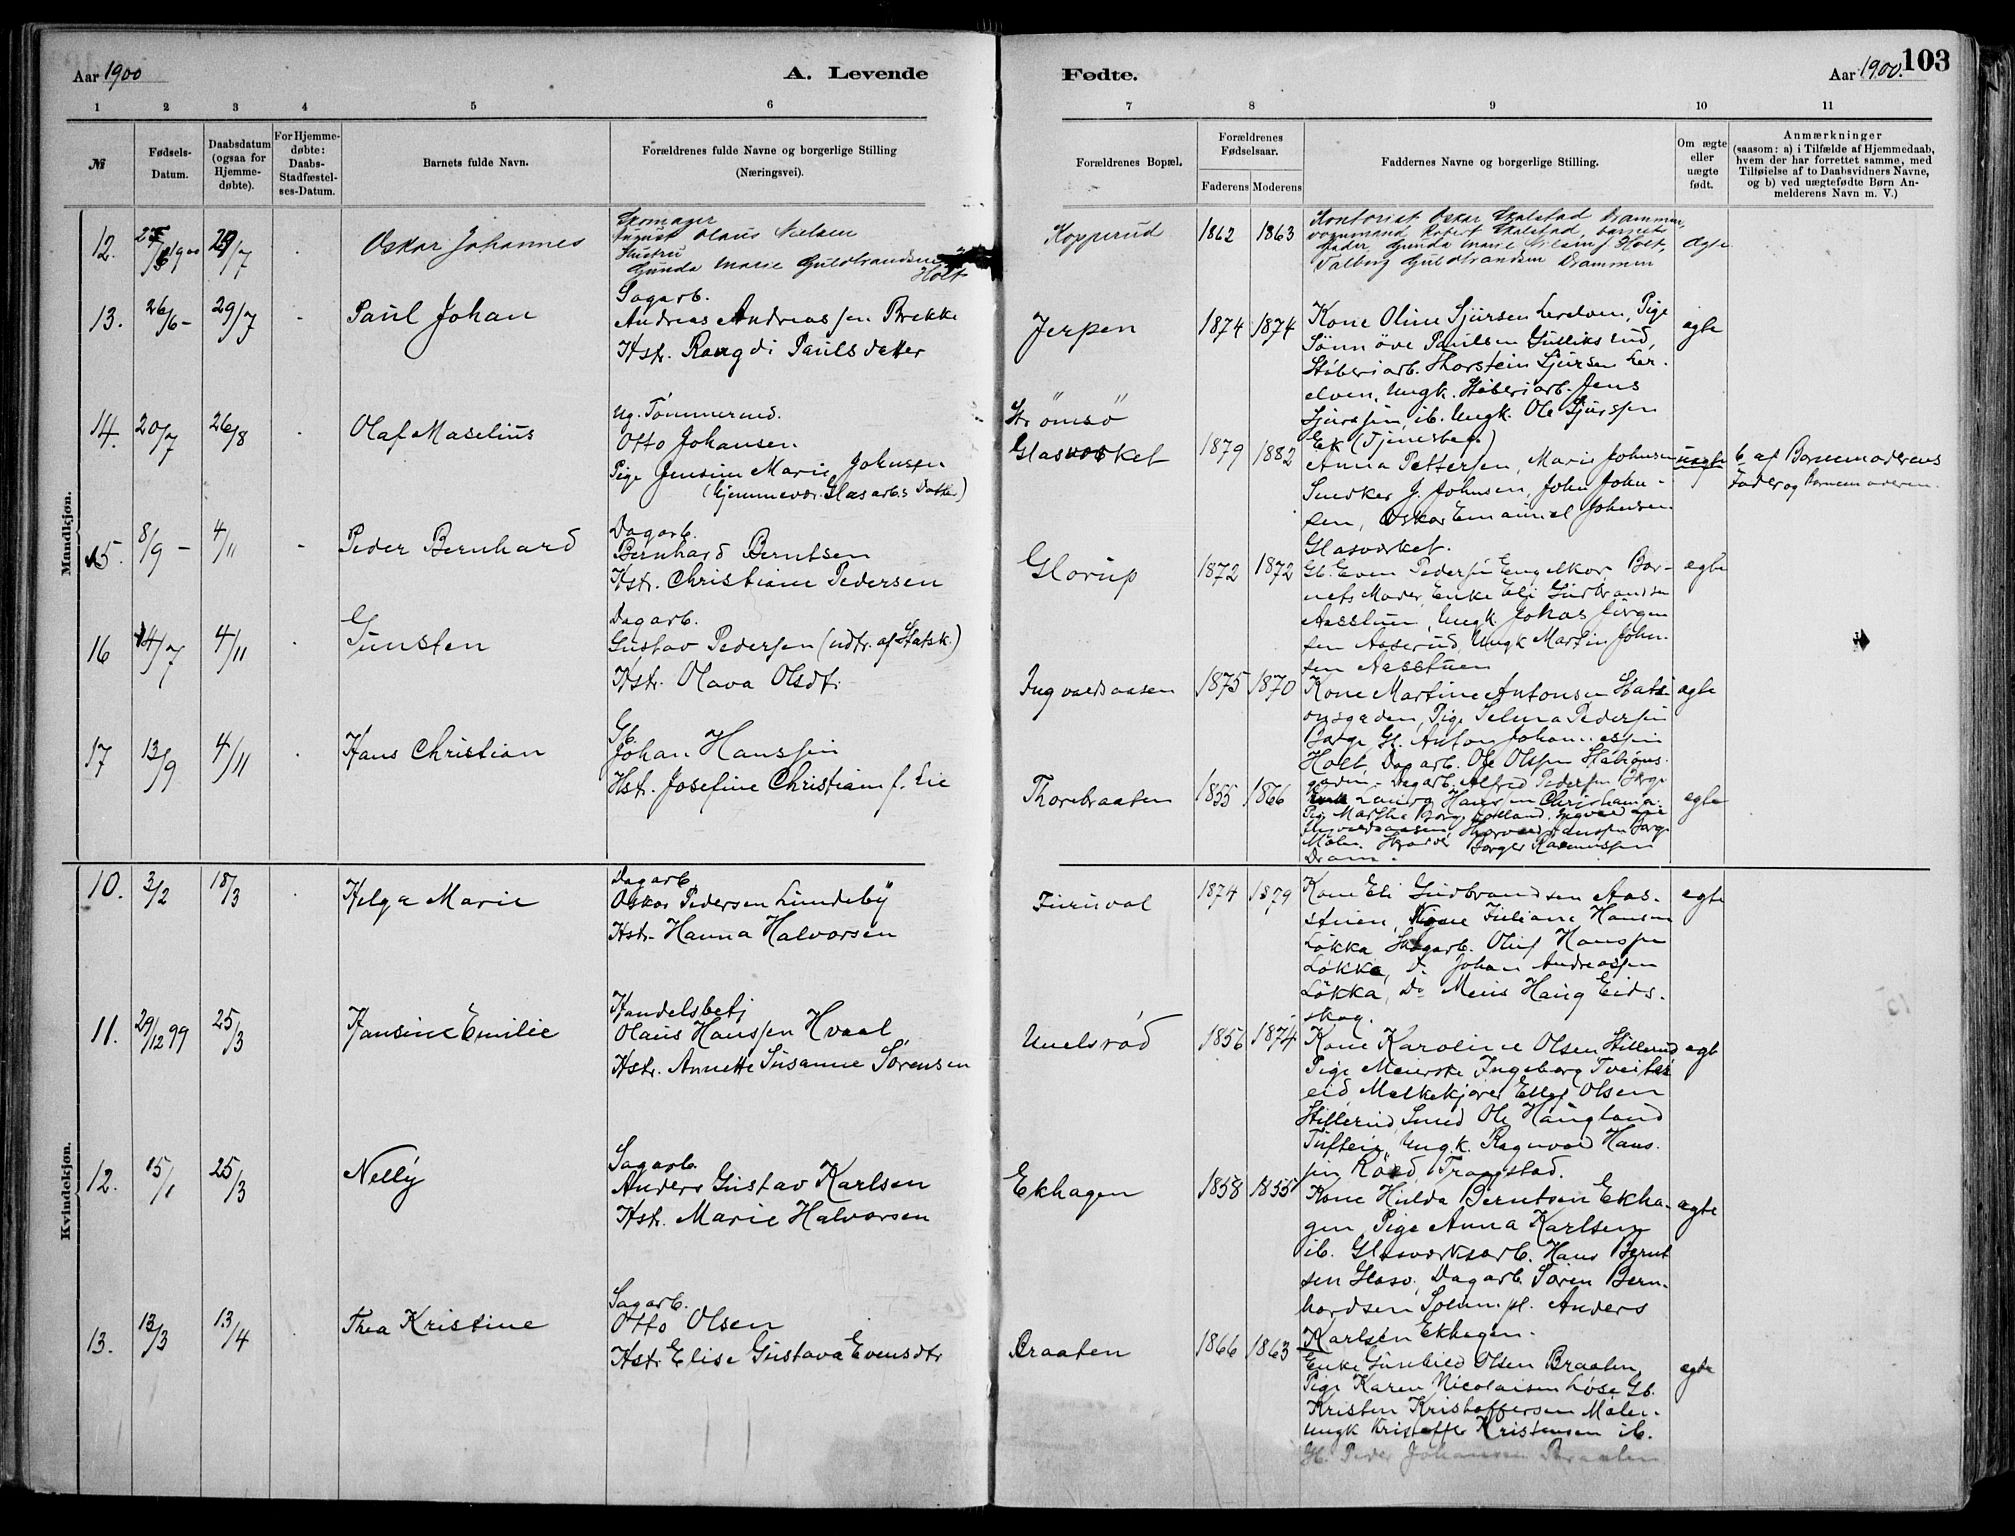 Aar 1900
A. Levende
Fødte.
Aar 1900.
103
1 2 3 4 5 6 7 8 9 10 11
№
Fødsels-
Datum.
Daabsdatum
(ogsaa for
Hjemme-
døbte).
For Hjemme-
døbte:
Daabs-
Stadfæstel-
ses-Datum.
Barnets fulde Navn.
Forældrenes fulde Navne og borgerlige Stilling
(Næringsvei).
Forældrenes Bopæl.
Forældrenes
Fødselsaar.
Faderens Moderens
Faddernes Navne og borgerlige Stilling.
Om ægte
eller
uægte
født.
Anmærkninger
(saasom: a) i Tilfælde af Hjemmedaab,
hvem der har forrettet samme, med
Tilføielse af to Daabsvidners Navne,
og b) ved uægtefødte Børn An-
melderens Navn m. V.)
Mandkjøn.
12. 29/7
Oskar Johannes
Skomager
August Olaus Nielsen
Hustru
Gunda Marie Guldbrandsen
Holt
Kopperud
1862 1863
Kontorist Oskar Skalstad Drammen,
Robert Skalstad, barnets
Fader, Gunda Marie Nielsen f. Holt,
Valborg Guldbrandsen Drammen
ægte
13. 26/6 - 29/7 -
Paul Johan
Sagarb.
Andreas Andreassen Brekke
Hstr. Rangdi Paulsdatter
Jerpen
1874 1874
Kone Oline Sjursen Lerelven, Pige
Sønnøve Paulsen Gulliksrud,
Støberiarb. Thorstein Sjursen Ler-
elven, Ungk. Støberiarb. Jens
Sjurssen, ib. Ungk. Ole Sjurssen
Ek (Tjenesberg)
egte
14. 20/7 26/8 -
Olaf Maselius
Ug. Tømmermd.
Otto Johansen
Pige Jensine Marie Johnsen
(hjemmevær. Glasarb.s Datter)
Strømsø
Glasværket
1879 1882
Anna Pettersen, Marie Johnsen
Snedker J. Johnsen, John John-
sen, Oskar Emanuel Johnsen
Glasværket.
uægte
b af Barnemoderens
Fader og Barnemoderen.
15. 8/9 - 4/11 -
Peder Bernhard
Dagarb.
Bernhard Berntsen
Hstr. Christiane Pedersen
Glorup
1872 1872
Gb. Even Pedersen Engelkor Bar-
nets Moder, Enke Eli Gudbrandsen
Aasstuen, Ungk. Johas Jørgen
sen Aaserud, Ungk Martin John-
sen Aasstuen
egte
16 14/7 4/11 -
Gunsten
Dagarb.
Gustav Pedersen (udtr. af Statsk.)
Hstr. Olava Olsdt.
Ingvaldsaasen
1875 1870
Kone Martine Antonsen Stati
onsgaden, Pige Selma Pedersen
Berge Gb. Anton Johannessen
Holt, Dagarb. Ole Olsen Stations-
gaden - Dagarb. Alfred Pedersen Berge
egte
17 13/9 4/11
Hans Christian
Gb.
Johan Hanssen
Hstr. Josefine Christians f. Lie
Thorebraaten
1855 1866
Hanssen Christiania.
Pig Martha
Dram.
egte
Kvindekjøn.
10. 3/2 18/3 -
Helga Marie
Dagarb.
Oskar Pedersen Lundeby
Hstr. Hanna Halvorsen
Furuval
1874 1879
Kone Eli Gudbrandsen Aas-
stuen, Kone Juliane Hansen
Løkka Skogarb. Oluf Hanssen
Løkka, Do Johan Andreassen
Løkka, Do Meius Haug Eids-
skog.
egte
11. 29/12 99 25/3
Hansine Emilie
Handelsbetj
Olaus Hanssen Hvaal
Hstr. Annette Susanne Sørensen
Unelsrød
1856 1874
Kone Karoline Olsen Stillerud
Pige Meierske Ingeborg Tveiter
eid, Melkekjører Ellef Olsen
Stillerud, Smed Ole Haugland
Tuftein, Ungk. Ragnvald Hans-
sen Røed, Trøgstad.
egte
12. 15/1 25/3
Nelly
Sagarb.
Anders Gustav Karlsen
Hstr. Marie Halvorsen
Ekhagen
1858 1855
Kone Hulda Berntsen Ekha-
gen, Pige Anna Karlsen
ib. Glasværksarb. Hans Bernt
sen Glasv. Dagarb. Søren Bern-
hardsen Solum pl. Anders
Karlsen Ekhagen.
egte
13. 13/3 13/4 -
Thea Kristine
Sagarb.
Otto Olsen
Hstr Elise Gustava Evensdtr
Braaten
1866 1863
Enke Gunhild Olsen Braaten,
Pige Karen Nicolaisen Løse Gb.
Kristen Kristoffersen Male-
Ungk Kristoffer Kristensen ib.
Gb. Peder Johansen Braaten
egte